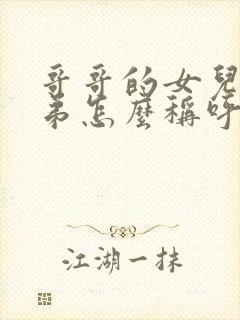 哥哥的女兒
弟怎麼稱呼
江湖一抹